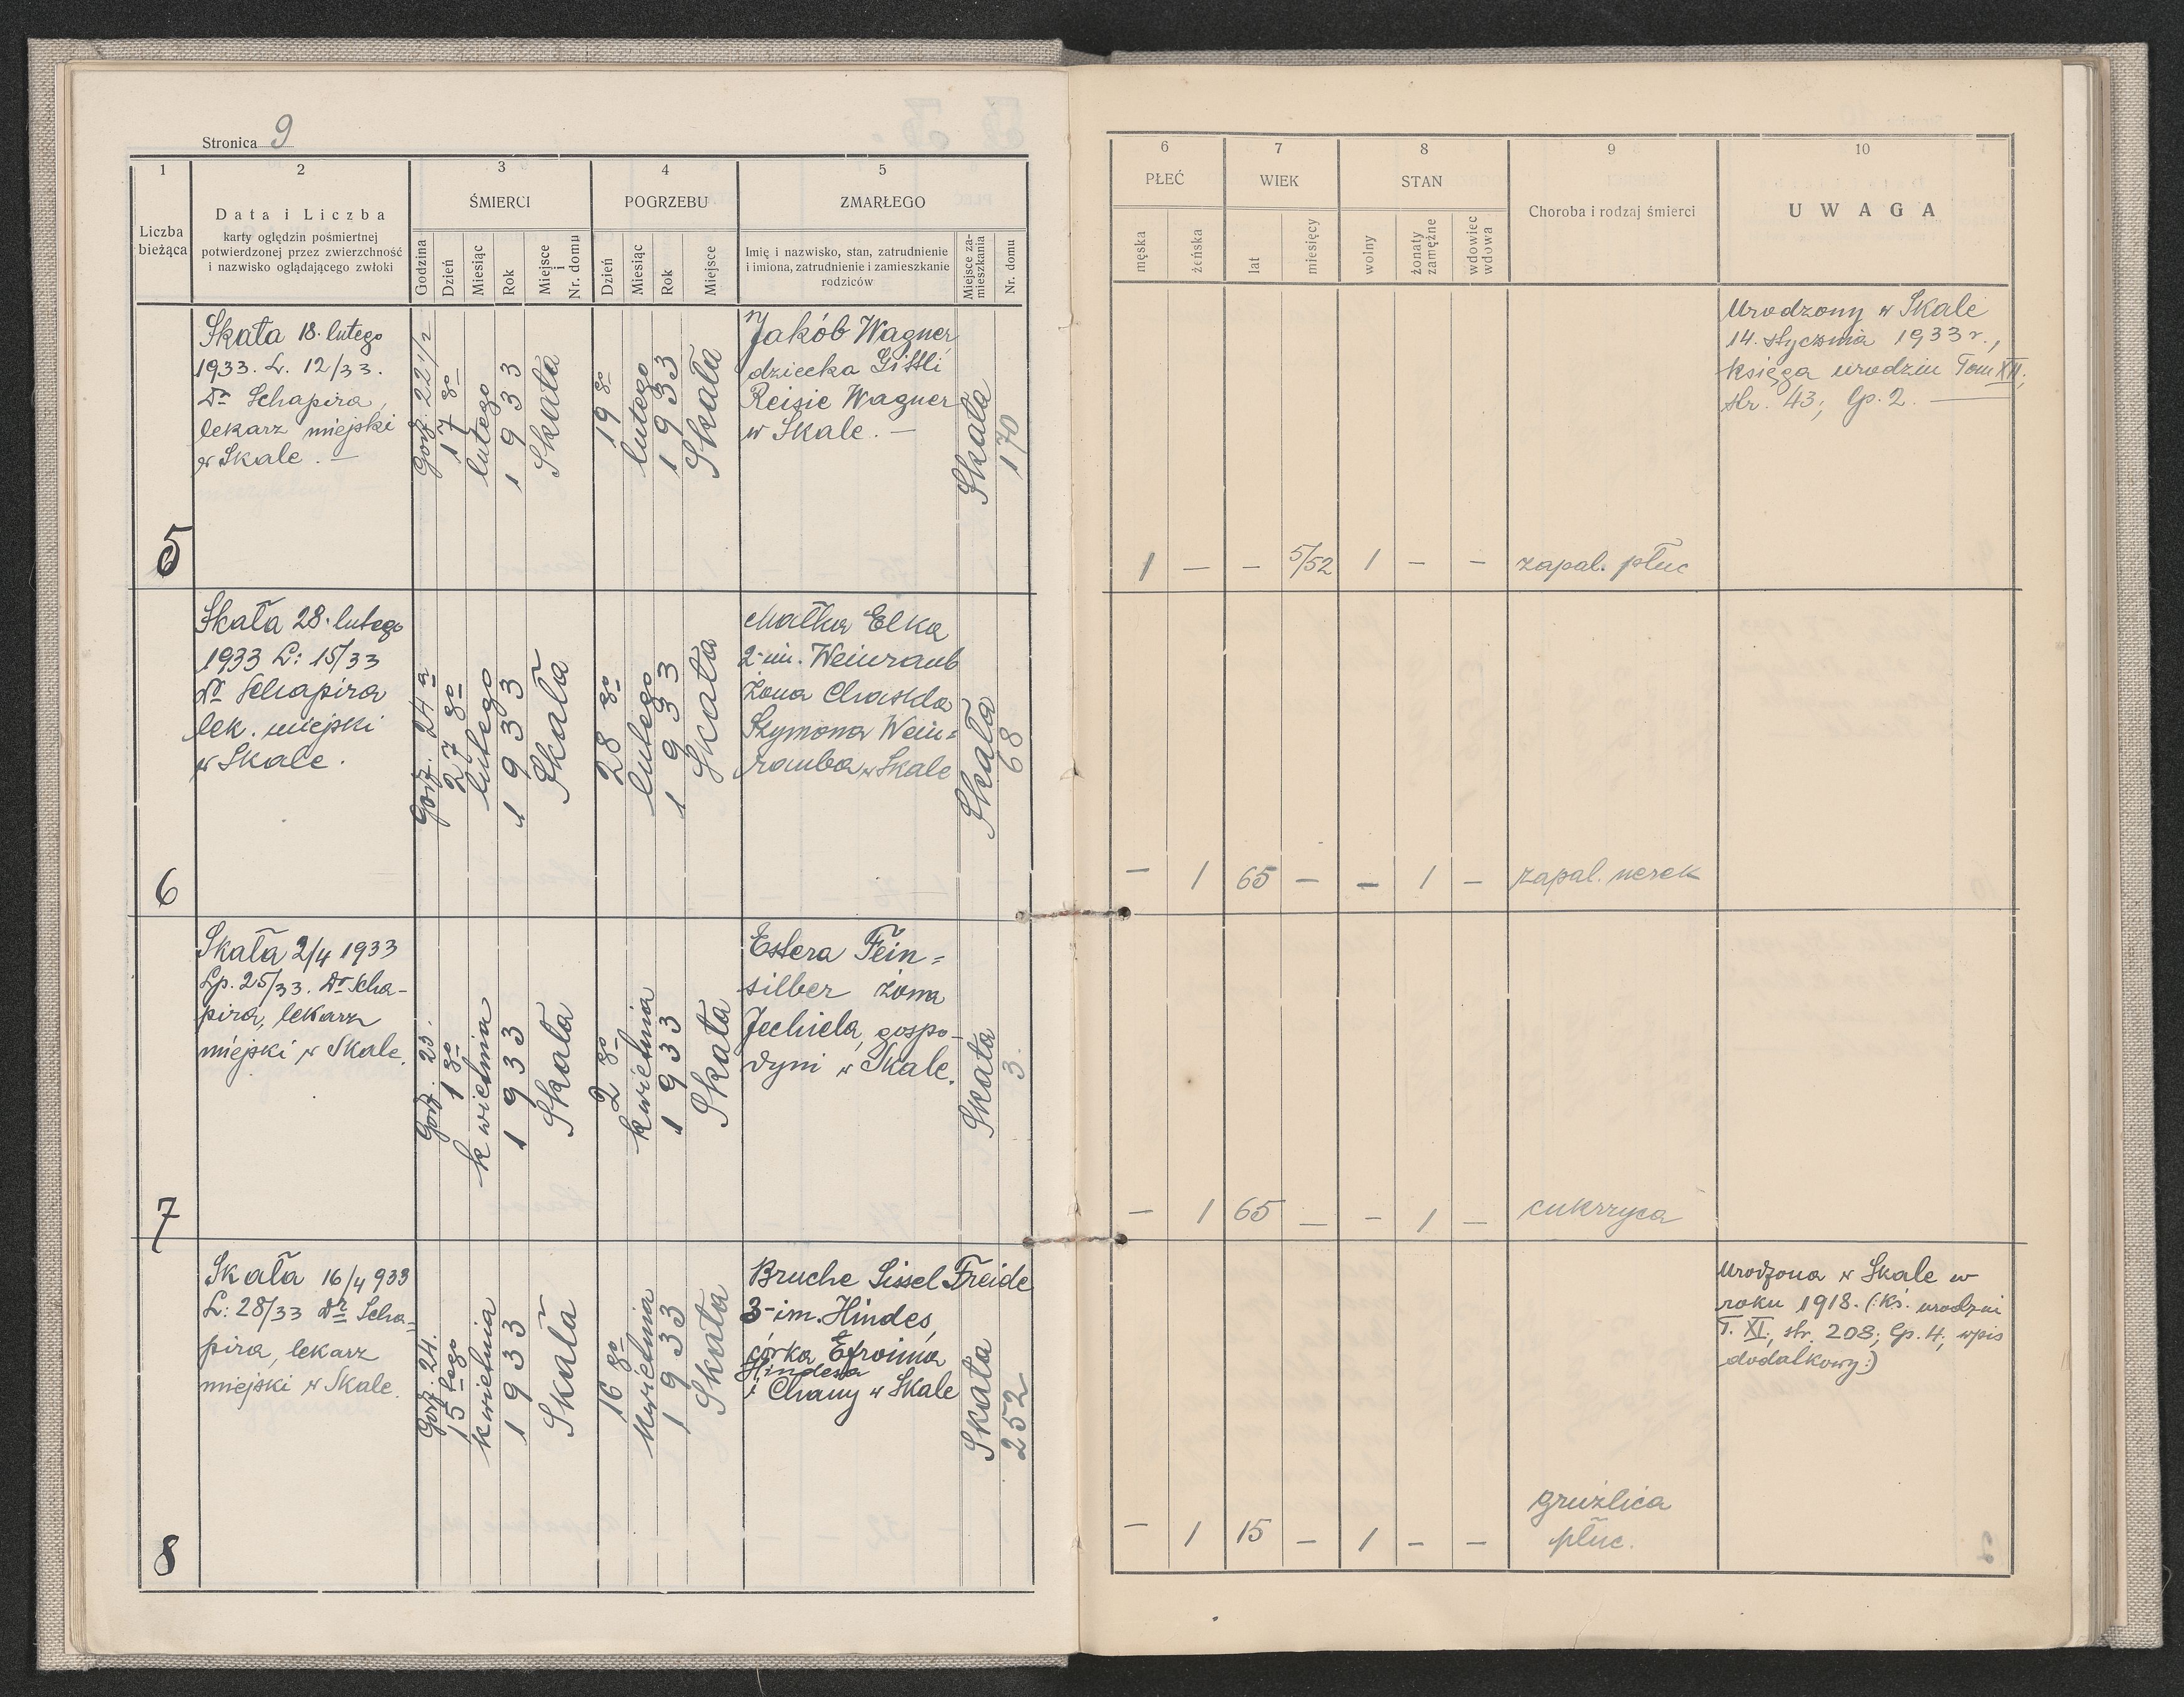 Stronica 9
1 2 3 4 5
Liczba bieżąca
Data i Liczba
karty oględzin pośmiertnej
potwierdzonej przez zwierzchność
i nazwisko oglądającego zwłoki
ŚMIERCI
Godzina
Dzień
Miesiąc
Rok
Miejsce i Nr. domu
POGRZEBU
Dzień
Miesiąc
Rok
Miejsce
ZMARŁEGO
Imię i nazwisko, stan, zatrudnienie
i imiona, zatrudnienie i zamieszkanie
rodziców
Miejsce zamieszkania
Nr. domu
6 7 8 9 10
PŁEĆ
męska
żeńska
WIEK
lat
miesięcy
STAN
wolny
żonaty zamężne
wdowiec wdowa
Choroba i rodzaj śmierci
UWAGA
5
Skała 18. lutego
1933. L. 12/33.
Dr Schapira,
lekarz miejski
w Skale. —
Godz. 22 1/2
17 go
lutego
1933
Skała
19 go
lutego
1933
Skała
Jakób Wagner
dziecko Gittli
Reisie Wagner
w Skale. —
Skała
170
1 — — 5/52 1 — —
zapal. płuc
Urodzony w Skale
14. stycznia 1933 r.,
księga urodzin Tom XII,
str. 43; lp. 2. —
6
Skała 28. lutego
1933 L: 15/33
Dr Schapira
lek. miejski
w Skale.
Godz. 24 a
27 go
lutego
1933
Skała
28 go
lutego
1933
Skała
Małka Elka
2-im. Weinraub
żona Chaskla
Szymona Wein=
rauba w Skale
Skała
68
— 1 65 — — 1 —
zapal. nerek
7
Skała 2/4 1933
Lp. 25/33. Dr Scha-
pira, lekarz
miejski w Skale.
Godz. 23.
1 go
kwietnia
1933
Skała
2 go
kwietnia
1933
Skała
Estera Fein=
silber żona
Jechiela, gospo-
dyni w Skale.
Skała
3.
— 1 65 — — 1 —
cukrzyca
8
Skała 16/4 933
L: 28/33 Dr Scha=
pira, lekarz
miejski w Skale.
Godz. 24.
15 tego
kwietnia
1933
Skała
16 go
kwietnia
1933
Skała
Bruche Sissel Freide
3-im. Hindes,
córka Efroima
Hindesa
i Chany w Skale
Skała
252
— 1 15 — 1 — —
gruźlica
płuc.
Urodzona w Skale w
roku 1918. (:Ks. urodzin
T. XI, str. 208; lp. 4; wpis
dodatkowy:)